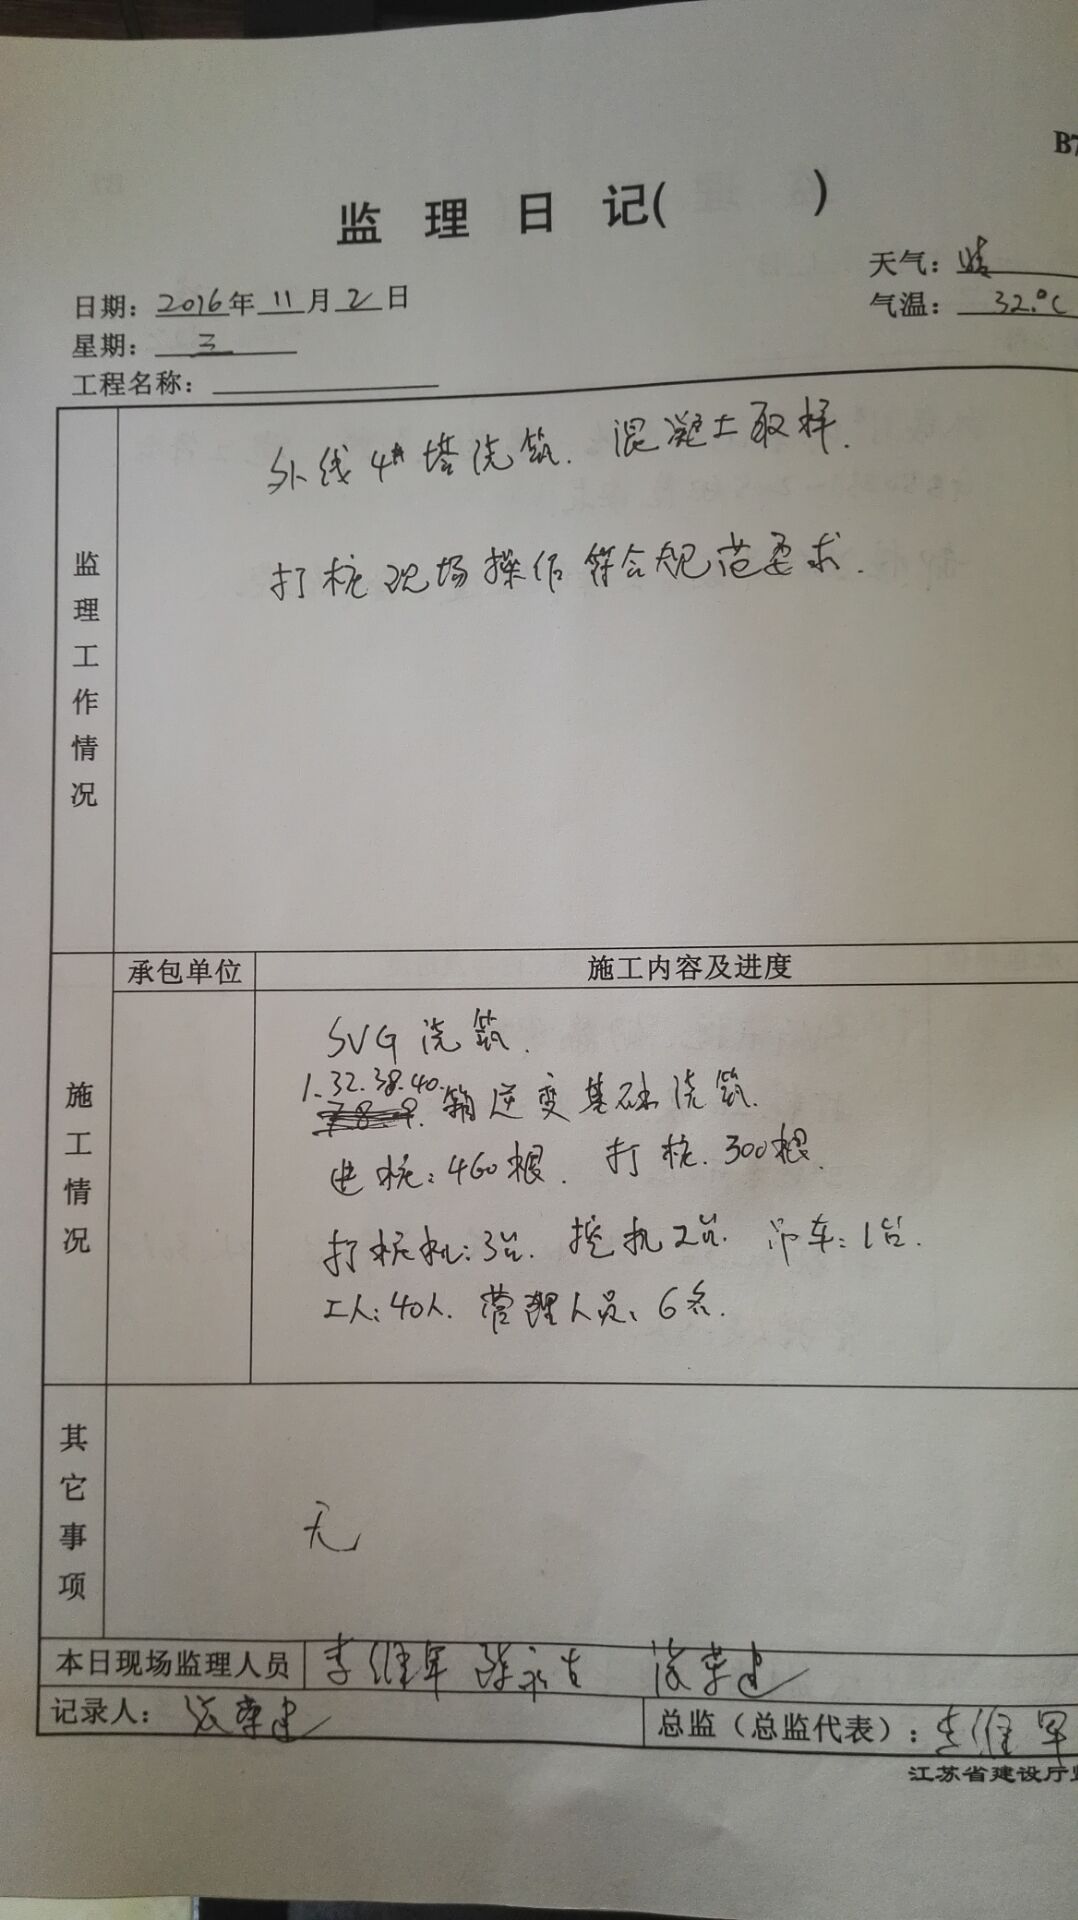 B7
监理日记( )
天气：晴
日期：2016年11月2日
气温：32.℃
星期：三
工程名称：
监理工作情况
外线4#塔浇筑. 混凝土取样.
打桩现场操作符合规范要求.
承包单位
施工内容及进度
施工情况
SVG浇筑.
1.32.38.40.
箱逆变基础浇筑.
进桩：460根. 打桩.300根.
打桩机：3台. 挖机2台. 吊车：1台.
工人：40人. 管理人员：6名.
其它事项
无
本日现场监理人员 李维军
记录人：
总监（总监代表）：李维军
江苏省建设厅监